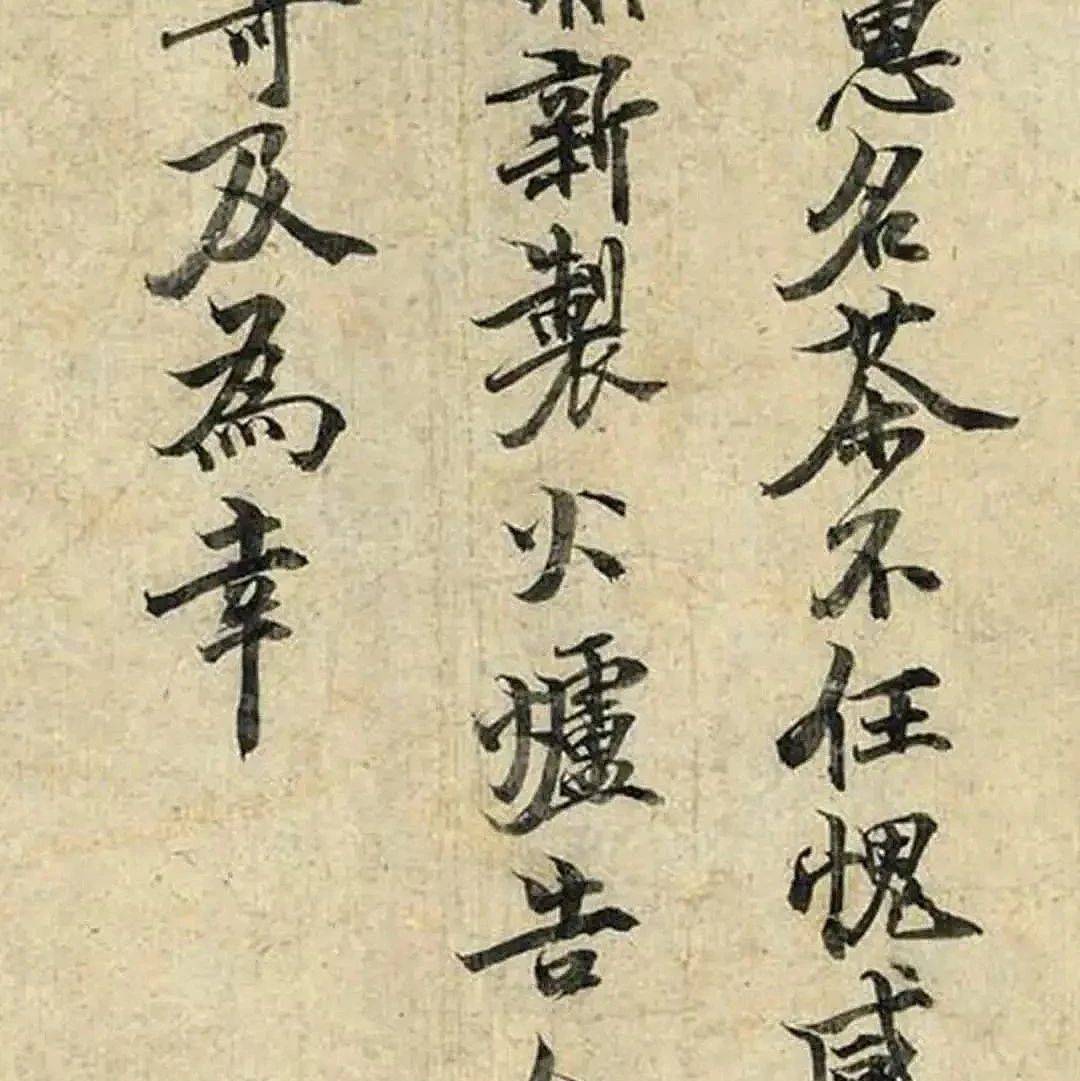 惠名茶不任愧感
新製火爐告
寄及為幸